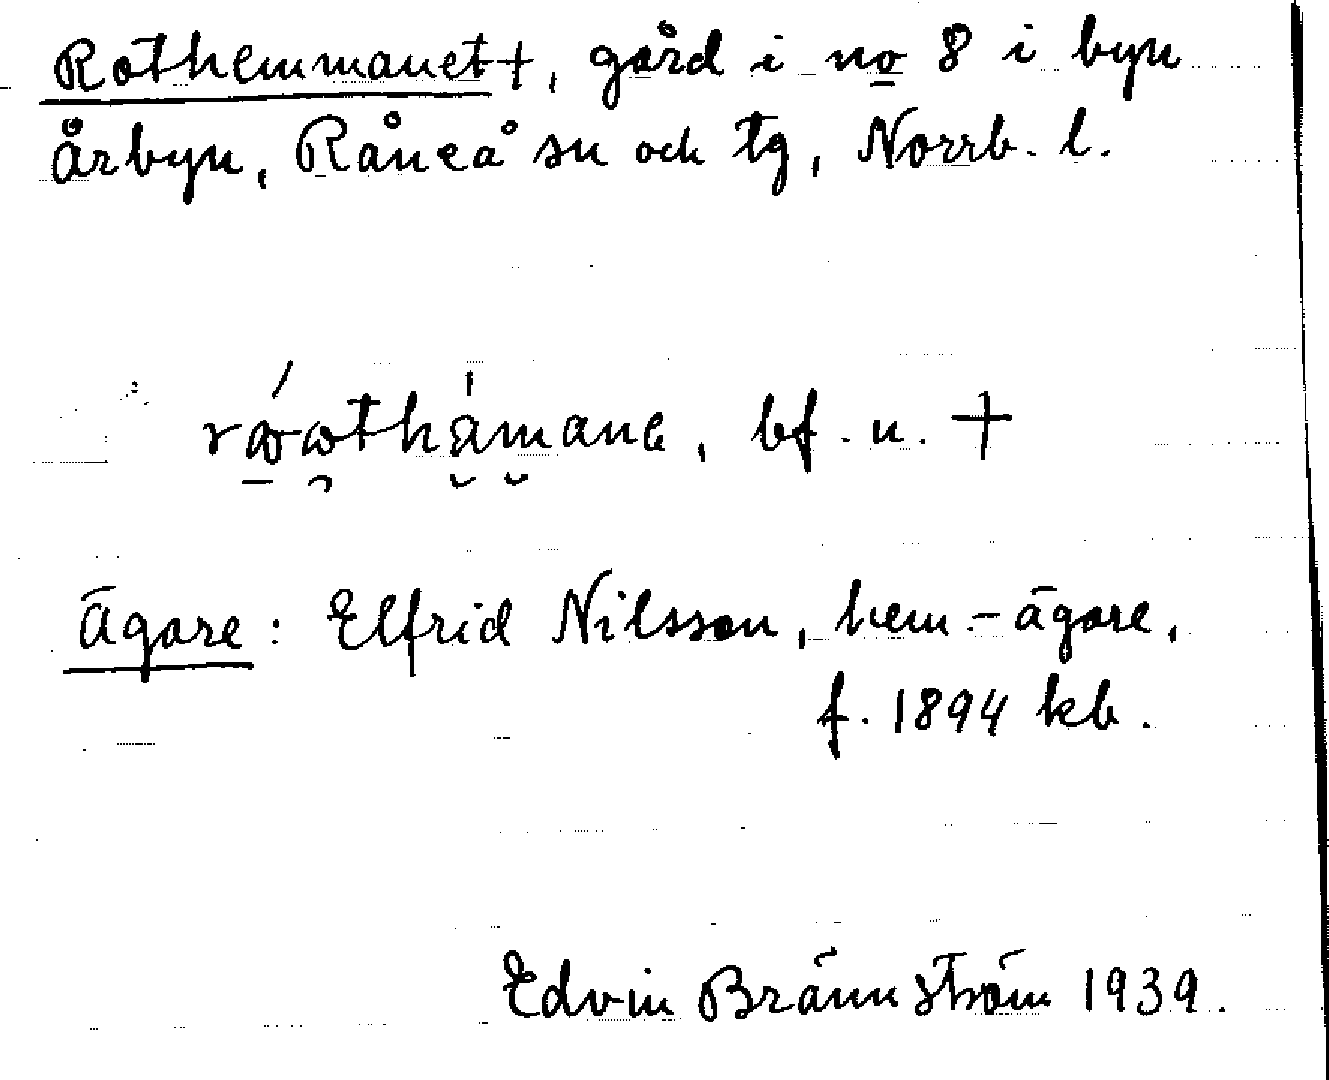 Rothemmanet +, gård i no 8 i byn
Årbyn, Råneå sn och tg, Norrb. l.
rωωthämane, bf. n. +
Ägare: Elfrid Nilsson, hem.-ägare,
f. 1894 kb.
Edvin Brännström 1939.